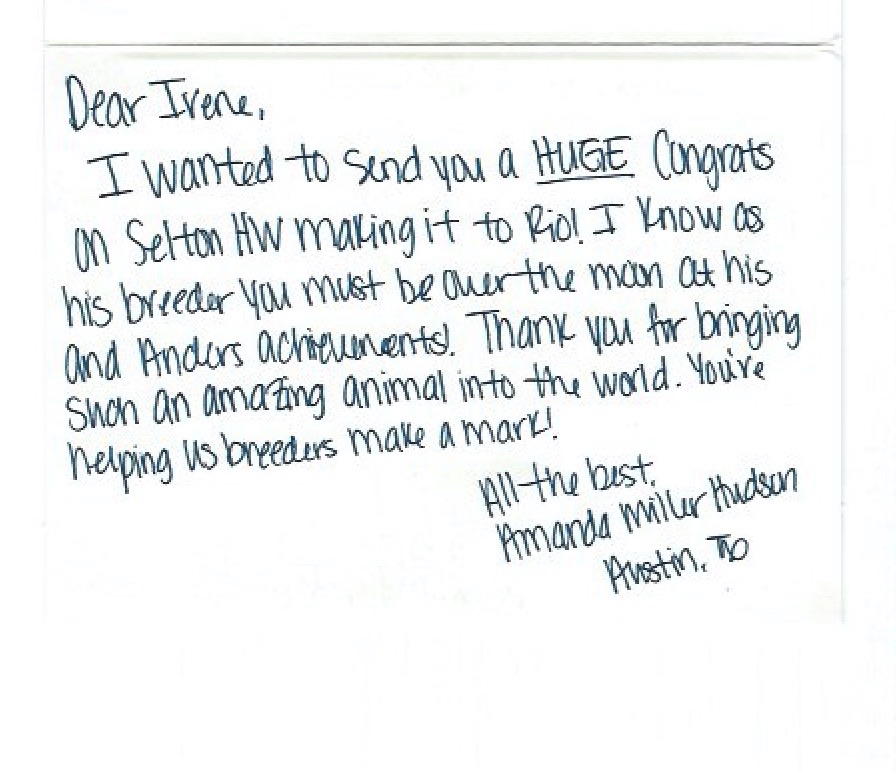 Dear Irene,
I wanted to send you a HUGE Congrats
on Selton HW making it to Rio! I know as
his breeder you must be over the moon at his
and Anders achievements! Thank you for bringing
such an amazing animal into the world. You're
helping us breeders make a mark!
All the best,
Amanda Miller Hudson
Austin,